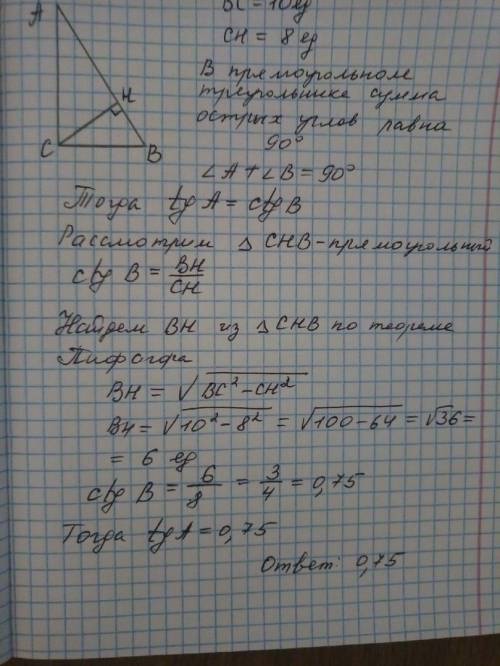 A
BC = 10 ед
CH = 8 ед
В прямоугольном
треугольнике сумма
острых углов равна
90°
H
C
B
∠A + ∠B = 90°
Тогда tg A = ctg B
Рассмотрим △ CHB - прямоугольный
ctg B = BH/CH
Найдем BH из △ CHB по теореме
Пифагора
BH = √BC² - CH²
BH = √10² - 8² = √100 - 64 = √36 =
= 6 ед
ctg B = 6/8 = 3/4 = 0,75
Тогда tg A = 0,75
Ответ: 0,75